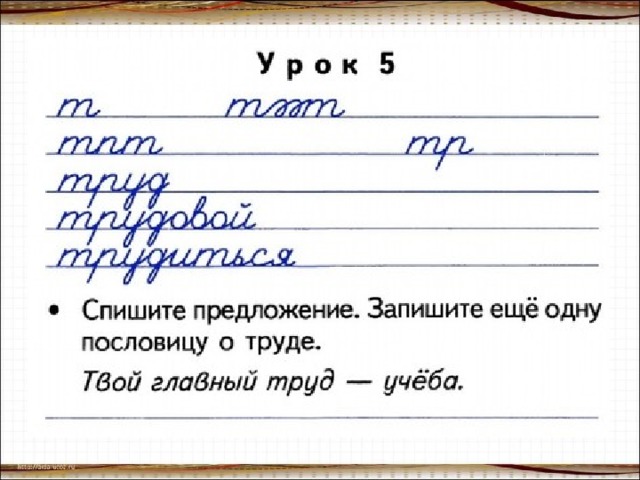 Урок 5
т тээт
тпт тр
труд
трудовой
трудиться
• Спишите предложение. Запишите ещё одну
пословицу о труде.
Твой главный труд — учёба.